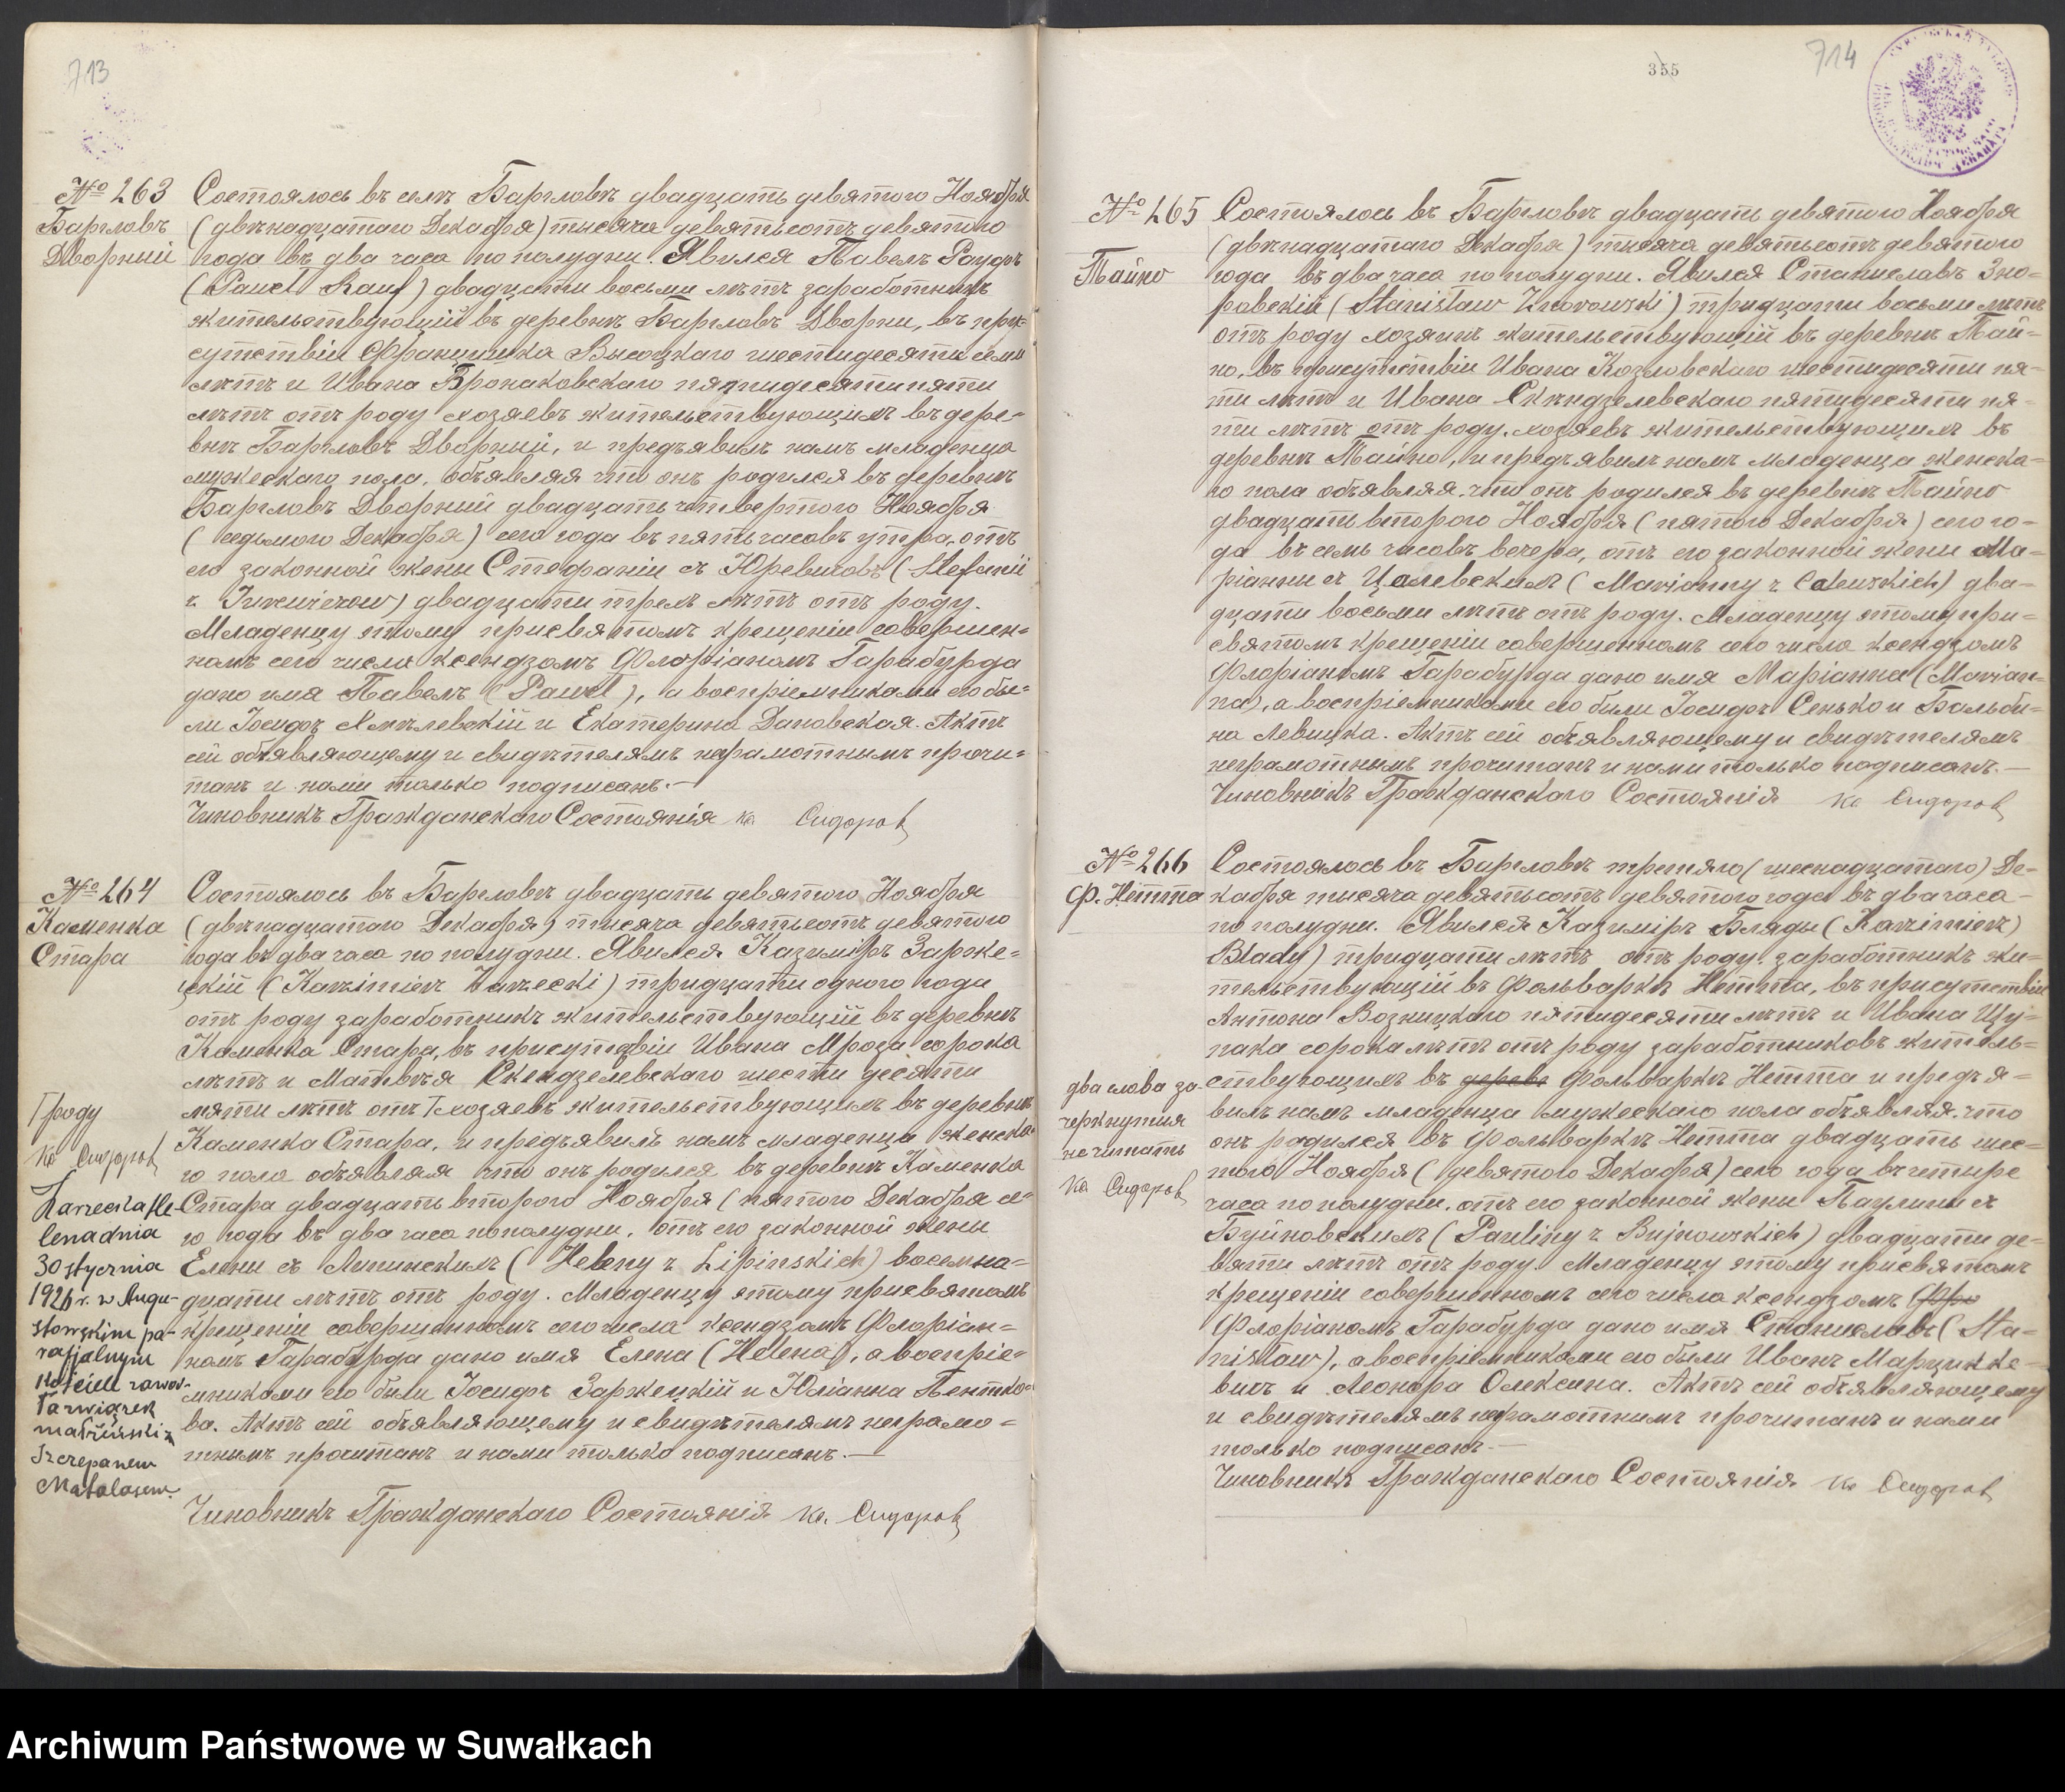 713
№ 263
Баргловъ
Дворный
Состоялось въ селѣ Баргловѣ двадцать девятого Ноября
(двѣнадцатаго Декабря) тысяча девятьсотъ девятого
года въ два часа по полудни. Явился Павелъ Рауфъ
(Paweł Rauf) двадцати восьми лѣтъ заработникъ
жительствующій въ деревнѣ Баргловъ Дворны, въ при-
сутствіи Францишка Высоцкаго шестидесяти семи
лѣтъ и Ивана Бронаковскаго пятидесяти пяти
лѣтъ отъ роду хозяевъ жительствующихъ въ дере-
внѣ Баргловъ Дворный, и предъявилъ намъ младенца
мужескаго пола, объявляя что онъ родился въ деревнѣ
Баргловъ Дворный двадцать четвертого Ноября
(седьмого Декабря) сего года въ пять часовъ утра, отъ
его законной жены Стефаніи съ Юревичовъ (Stefanii
z Jurewiczow) двадцати трехъ лѣтъ отъ роду.
Младенцу этому при святомъ крещеніи совершен-
номъ сего числа ксендзомъ Флоріаномъ Гарабурда
дано имя Павелъ (Paweł), а воспріемниками его бы-
ли Іосифъ Хмѣлевскій и Екатерина Дановская. Актъ
сей объявляющему и свидѣтелямъ неграмотнымъ прочи-
танъ и нами только подписанъ.—
Чиновникъ Гражданскаго Состоянія Кс Сидоров
№ 264
Каменка
Стара
Состоялось въ Баргловѣ двадцать девятого Ноября
(двѣнадцатого Декабря) тысяча девятьсотъ девятого
года въ два часа по полудни. Явился Казиміръ Зарже-
цкій (Kazimierz Zarzecki) тридцати одного года
отъ роду заработникъ жительствующій въ деревнѣ
Каменка Стара, въ присутствіи Ивана Мроза сорока
лѣтъ и Матвѣя Скендзелевскаго шести десяти
пяти лѣтъ отъ Г хозяевъ жительствующихъ въ деревнѣ
Каменка Стара, и предъявилъ намъ младенца женска-
го пола объявляя что онъ родился въ деревнѣ Каменка
Стара двадцать второго Ноября (пятого Декабря се-
го года въ два часа пополудни, отъ его законной жены
Елены съ Липинскихъ (Heleny z Lipinskich) восемна-
дцати лѣтъ отъ роду. Младенцу этому при святомъ
крещеніи совершенномъ сего числа ксендзомъ Флоріан-
номъ Гарабурда дано имя Елена (Helena), а воспріе-
мниками его были Іосифъ Заржецкій и Юліанна Пентко-
ва. Актъ сей объявляющему и свидѣтелямъ неграмо-
тнымъ прочитанъ и нами только подписанъ.—
Чиновникъ Гражданскаго Состоянія Кс. Сидоров
Г роду
Кс Сидоров
Zarzecka He-
lena dnia
30 stycznia
1926 r. w Augu-
stowskim pa-
rafjalnym
Kościele zawar-
ła związek
małżeński z
Szczepanem
Matalasem.
355
714
№ 265
Тайно
Состоялось въ Баргловѣ двадцать девятого Ноября
(двѣнадцатаго Декабря) тысяча девятьсотъ девятого
года въ два часа по полудни. Явился Станиславъ Зно-
ровскій (Stanisław Znorowski) тридцати восьми лѣтъ
отъ роду хозяинъ жительствующій въ деревнѣ Тай-
но, въ присутствіи Ивана Козловскаго шестидесяти пя-
ти лѣтъ и Ивана Скендзелевскаго пятидесяти пя-
ти лѣтъ отъ роду, хозяевъ жительствующихъ въ
деревнѣ Тайно, и предъявилъ намъ младенца женска-
го пола объявляя, что онъ родился въ деревнѣ Тайно
двадцать второго Ноября (пятого Декабря) сего го-
да въ семь часовъ вечера, отъ его законной жены Ма-
ріанны съ Цалевскихъ (Marianny z Calewskich) два-
дцати восьми лѣтъ отъ роду. Младенцу этому при
святомъ крещеніи совершенномъ сего числа ксендзомъ
Флоріаномъ Гарабурда дано имя Маріанна (Marian-
na), а воспріемниками его были Іосифъ Сенько и Бальби-
на Левицка. Актъ сей объявляющему и свидѣтелямъ
неграмотнымъ прочитанъ и нами только подписанъ.—
Чиновникъ Гражданскаго Состоянія Кс Сидоров
№ 266
Ф. Нетта
Состоялось въ Баргловѣ третяго (шеснадцатаго) Де-
кабря тысяча девятьсотъ девятого года въ два часа
по полудни. Явился Казиміръ Бляды (Kazimierz
Blady) тридцати лѣтъ отъ роду, заработникъ жи-
тельствующій въ Фольваркѣ Нетта, въ присутствіи
Антона Возницкаго пятидесяти лѣтъ и Ивана Щу-
пака сорока лѣтъ отъ роду заработниковъ житель-
ствующихъ въ дерев Фольваркѣ Нетта и предъя-
вилъ намъ младенца мужескаго пола объявляя, что
онъ родился въ Фольваркѣ Нетта двадцать шес-
того Ноября (девятого Декабря) сего года въ четыре
часа по полудни, отъ его законной жены Паулины съ
Буйновскихъ (Pauliny z Bujnowskich) двадцати де-
вяти лѣтъ отъ роду. Младенцу этому при святомъ
крещеніи совершенномъ сего числа ксендзомъ Фло
Флоріаномъ Гарабурда дано имя Станиславъ (Sta-
nisław), а воспріемниками его были Иванъ Марцинке-
вичъ и Леонора Олексина. Актъ сей объявляющему
и свидѣтелямъ неграмотнымъ прочитанъ и нами
только подписанъ.—
Чиновникъ Гражданскаго Состоянія Кс Сидоров
два слова за-
черкнутыя
не читать
Кс Сидоров
Archiwum Państwowe w Suwałkach